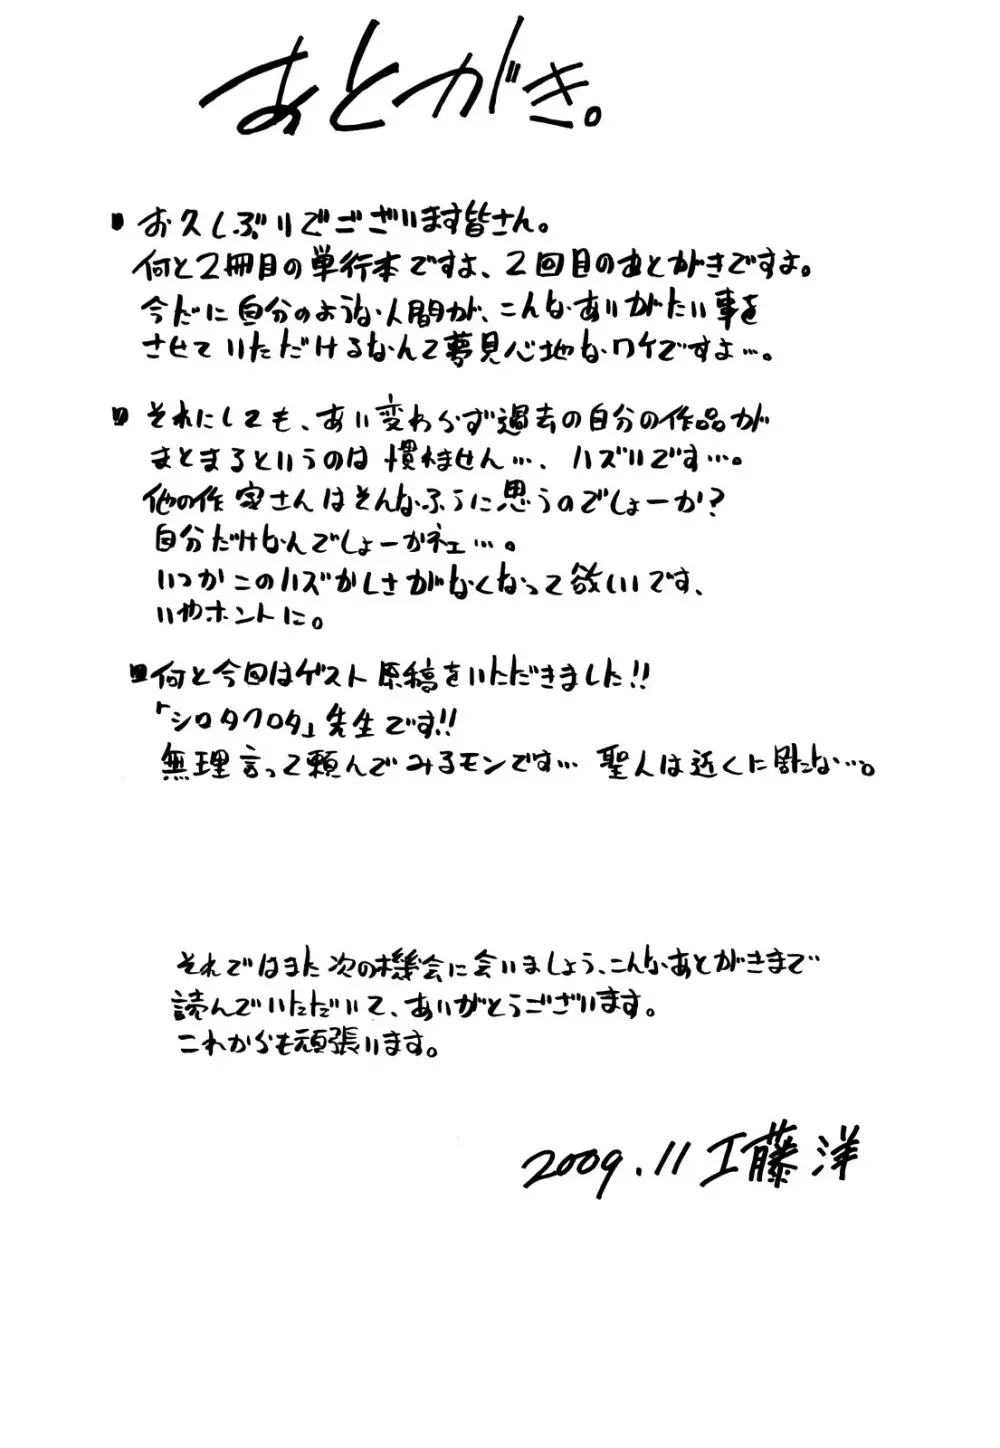 あとがき。
■お久しぶりでございます皆さん。
何と2冊目の単行本ですよ、2回目のあとがきですよ。
今だに自分のような人間が、こんなありがたい事を
させていただけるなんて夢見心地なワケですよ…。
■それにしても、あい変わらず過去の自分の作品が
まとまるというのは慣れません…、ハズいです…。
他の作家さんはそんなふうに思うのでしょーか?
自分だけなんでしょーかネェ…。
いつかこのハズかしさがなくなって欲しいです、
いやホントに。
■何と今回はゲスト原稿をいただきました!!
「シロタクロタ」先生です!!
無理言って頼んでみるモンです… 聖人は近くに居たな…。
それではまた次の機会に会いましょう、こんなあとがきまで
読んでいただいて、ありがとうございます。
これからも頑張ります。
2009.11 工藤洋